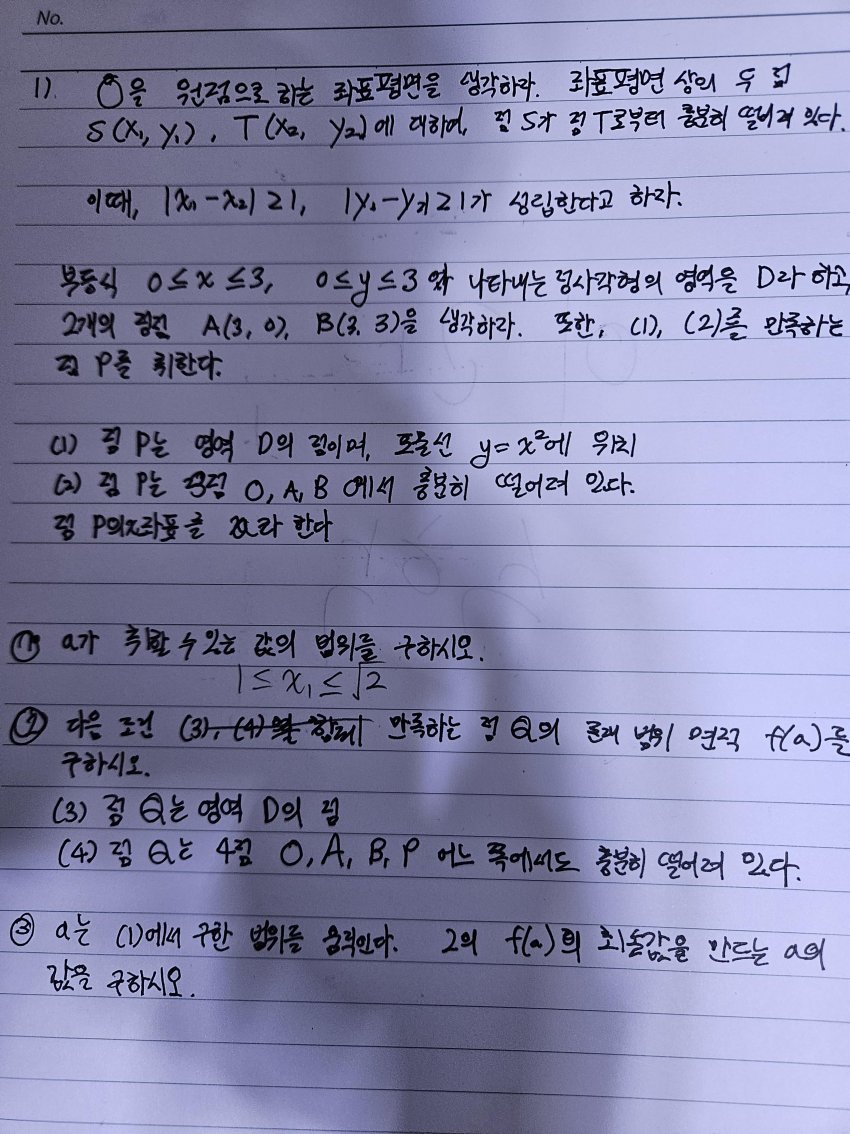 No.
1). O을 원점으로 하는 좌표평면을 생각하라. 좌표평면 상의 두 점
S(x₁, y₁), T(x₂, y₂)에 대하여, 점 S가 점 T로부터 충분히 떨어져 있다.
이때, |x₁-x₂|≥1, |y₁-y₂|≥1가 성립한다고 하라.
부등식 0≤x≤3, 0≤y≤3 나타내는 정사각형의 영역을 D라 하고,
2개의 A(3, 0), B(3, 3)을 생각하라. 또한, (1), (2)를 만족하는
점 P를 취한다.
(1) 점 P는 영역 D의 점이며, 포물선 y=x²에 위치
(2) 점 P는 3점 O, A, B 에서 충분히 떨어져 있다.
점 P의 x좌표를 a라 한다
① a가 취할 수 있는 값의 범위를 구하시오.
1≤x₁≤√2
② 다음 조건 (3), (4) 만족하는 점 Q의 존재 범위 면적 f(a)를
구하시오.
(3) 점 Q는 영역 D의 점
(4) 점 Q는 4점 O, A, B, P 어느 쪽에서도 충분히 떨어져 있다.
③ a는 (1)에서 구한 범위를 움직인다. 2의 f(a)의 최솟값을 만드는 a의
값을 구하시오.